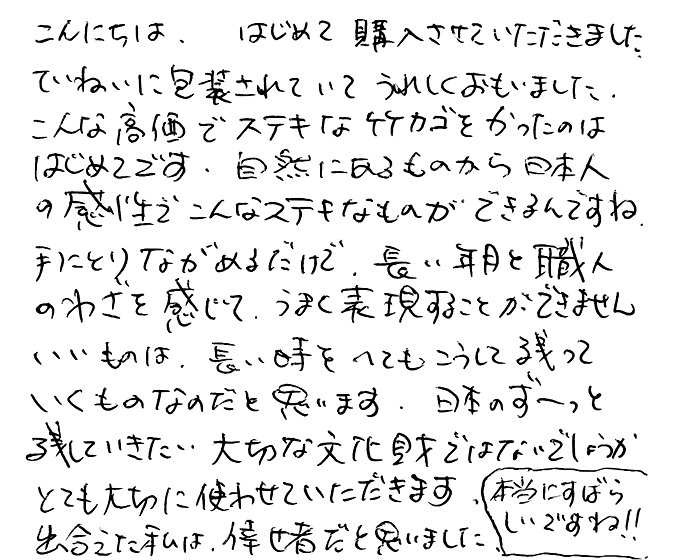 こんにちは. はじめて 購入させていただきました.
ていねいに包装されていて うれしくおもいました.
こんな高価でステキな竹カゴをかったのは
はじめてです. 自然にあるものから日本人
の感性でこんなステキなものができるんですね.
手にとりながめるだけで. 長い年月と職人
のわざを感じて. うまく表現することができません
いいものは. 長い時をへてもこうして残って
いくものなのだと思います. 日本のず〜っと
残していきたい大切な文化財ではないでしょうか
とても大切に使わせていただきます.
出合えた私は、倖せ者だと思いました.
本当にすばら
しいですね!!